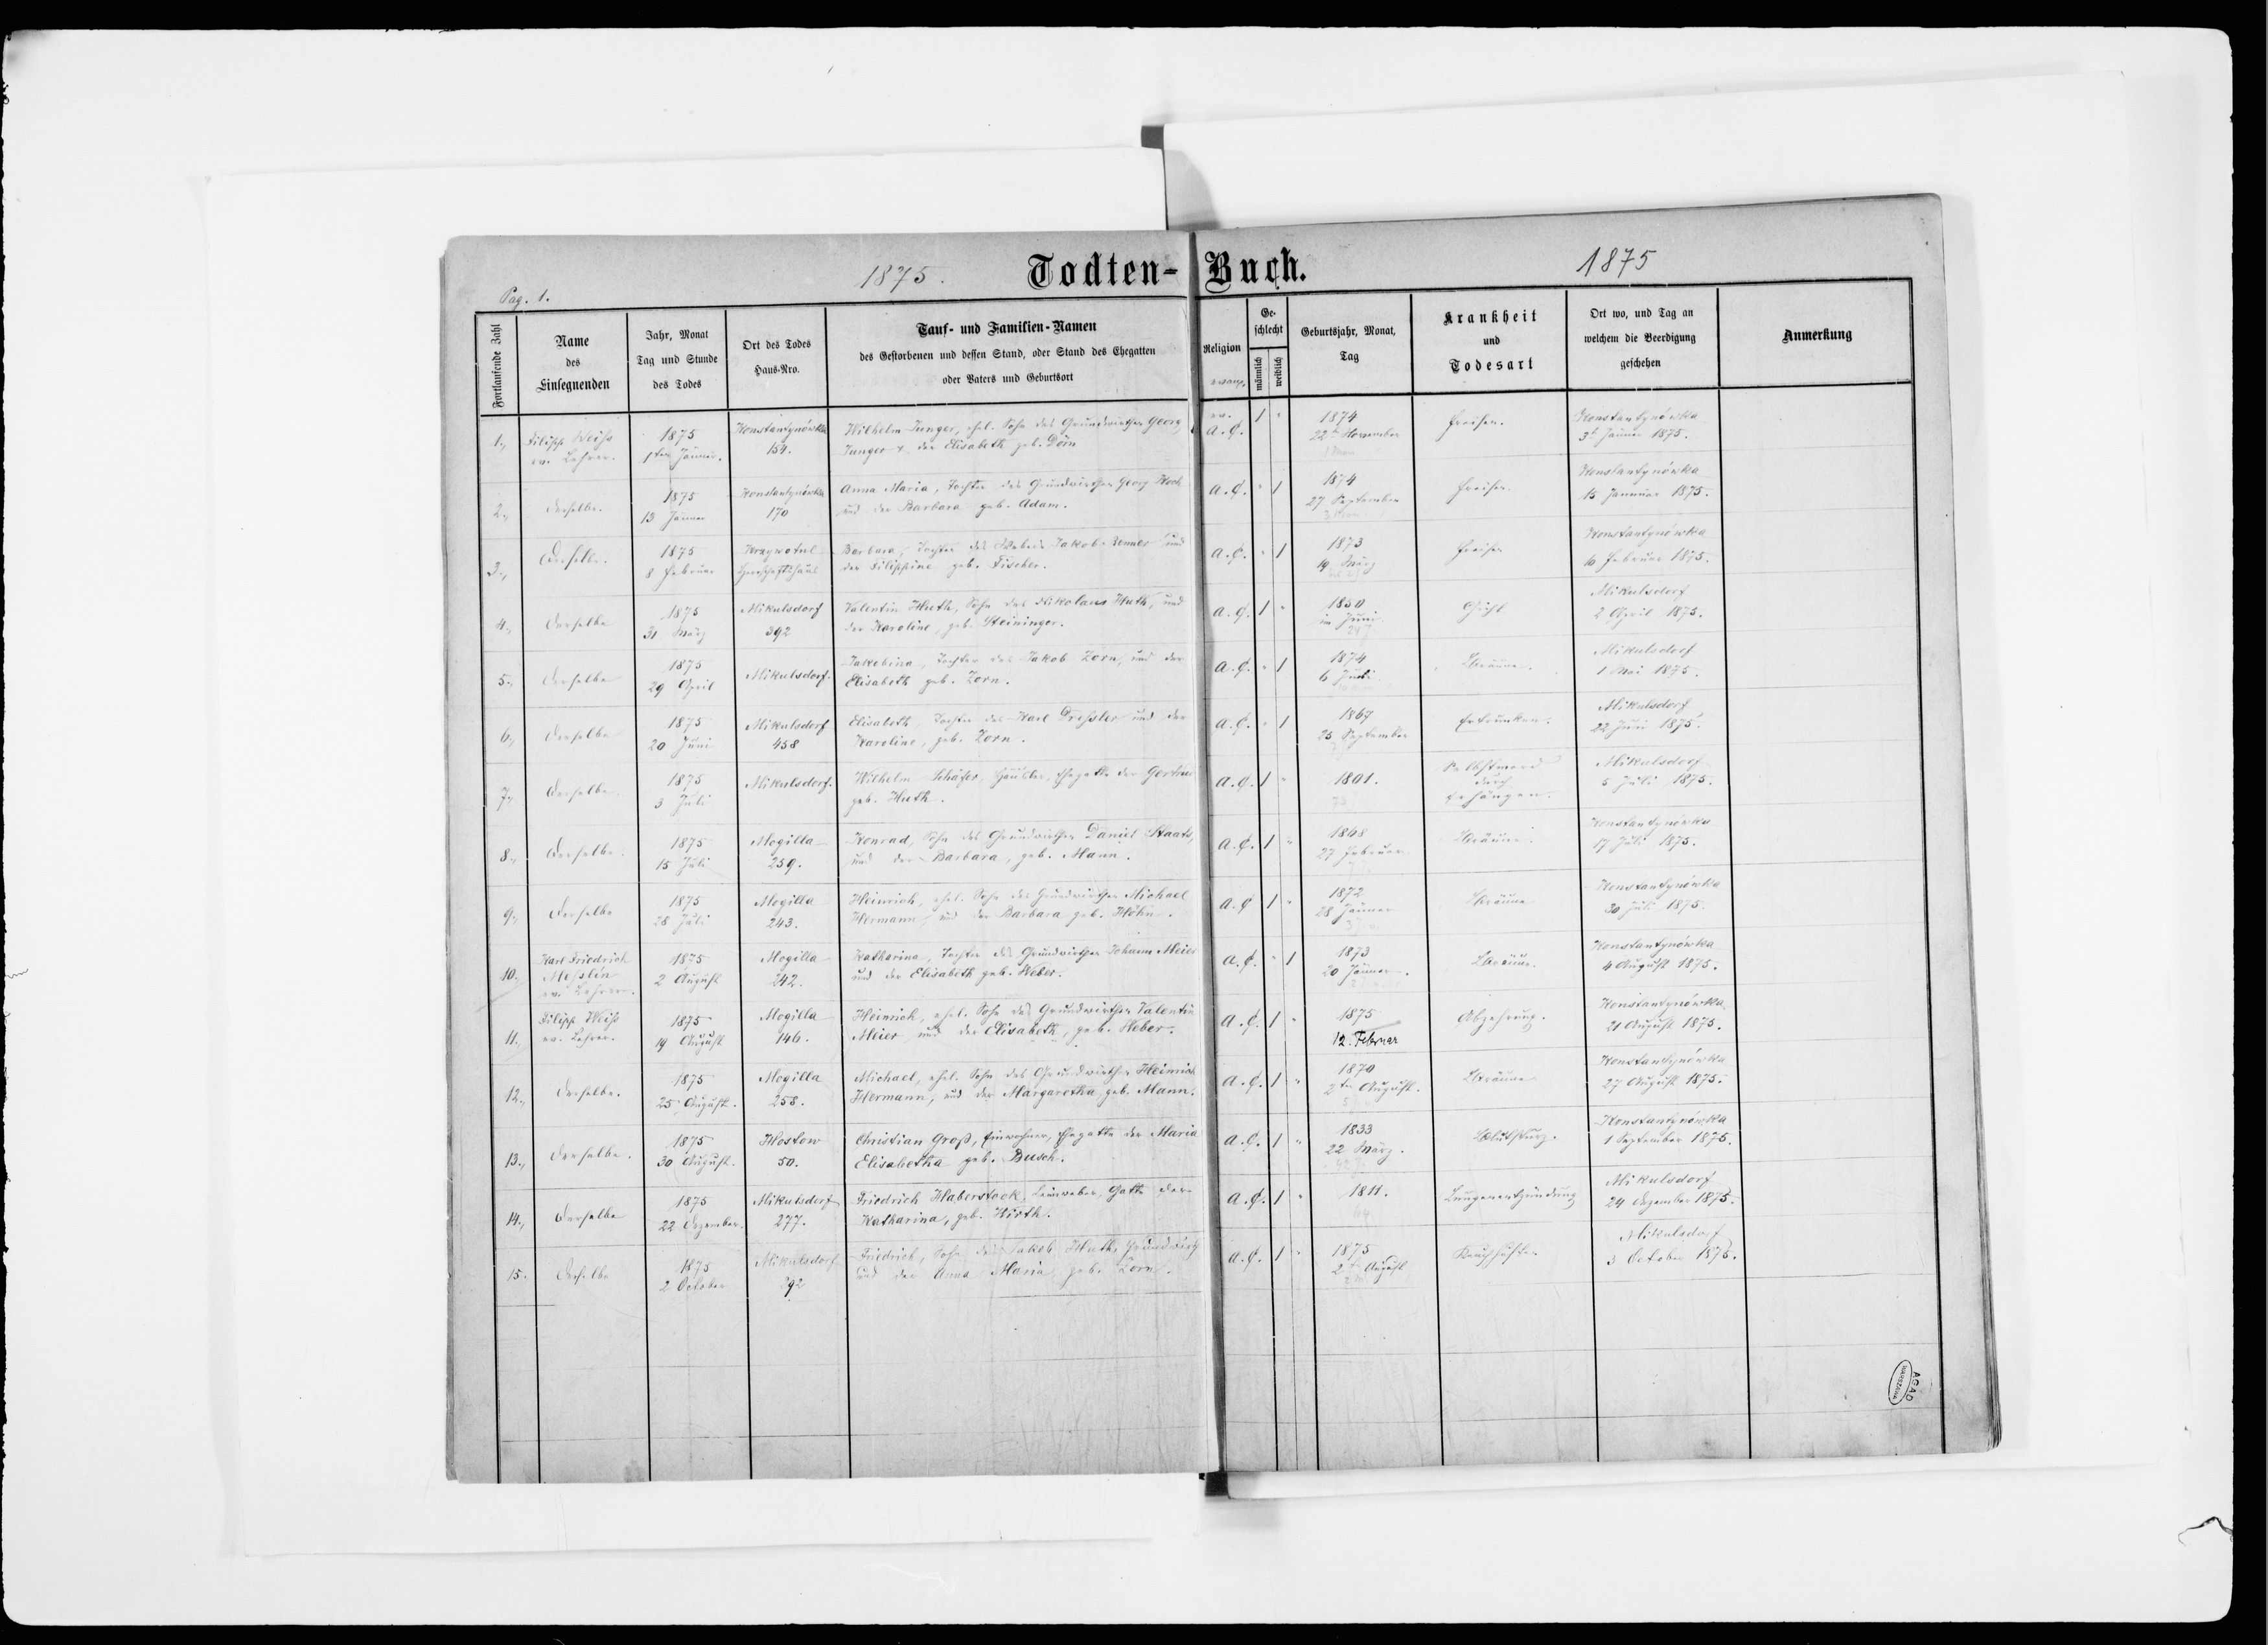 1875. Todten-Buch. 1875
Pag. 1.
Fortlaufende Zahl
Name
des
Einsegnenden
Jahr, Monat
Tag und Stunde
des Todes
Ort des Todes
Haus-Nro.
Tauf- und Familien-Namen
des Gestorbenen und dessen Stand, oder Stand des Ehegatten
oder Vaters und Geburtsort
Religion
evang.
Ge-
schlecht
männlich
weiblich
Geburtsjahr, Monat,
Tag
Krankheit
und
Todesart
Ort wo, und Tag an
welchem die Beerdigung
geschehen
Anmerkung
1., Filipp Weiß 1875 Konstantynówka Wilhelm Junger, ehel. Sohn des Grundwirthen Georg ev. 1 " 1874 Freisen. Konstantynówka
ev. Lehrer. 1ten Jänner. 154. Junger u. der Elisabeth geb. Dörn A.C. 22t November 3t Jänner 1875.
2., Derselbe. 1875 Konstantynówka Anna Maria, Tochter des Grundwirthen Georg Koch A.C. " 1 1874 Freisen. Konstantynówka
13 Jänner 170 und der Barbara geb. Adam. 27 September 15 Jannuar 1875.
3., Derselbe. 1875 Barbara, Tochter des Webers Jakob und A.C. " 1 1873 Freisen Konstantynówka
8 Februar der Filippine geb. Fischer. 19 März 10 Februar 1875.
4., Derselbe 1875 Mikulsdorf Valentin Huth, Sohn des Nikolaus Huth, und A.C. 1 " 1850 Gicht Mikulsdorf
31 März 392 der Karoline, geb. Steininger. im Juni 2 April 1875.
5., Derselbe 1875 Mikulsdorf. Jakobina, Tochter des Jakob Zorn, und der A.C. " 1 1874 Bräune. Mikulsdorf
29 April Elisabeth geb. Zorn. 6 Juli 1 Mai 1875.
6., Derselbe 1875 Mikulsdorf Elisabeth, Tochter des Karl Dreßler und der A.C. " 1 1867 Ertrunken. Mikulsdorf
20 Juni 458 Karoline, geb. Zorn. 25 September 22 Juni 1875.
7., Derselbe. 1875 Mikulsdorf. Wilhelm Schäfer, Häusler, Ehegatte der Gertrud A.C. 1 " 1801. Selbstmord Mikulsdorf
3 Juli geb. Huth. 73 durch 5 Juli 1875.
Erhängen.
8., Derselbe. 1875 Mogilla Konrad, Sohn des Grundwirthen Daniel Staats, A.C. 1 " 1868 Bräune. Konstantynówka
15 Juli 259. und der Barbara, geb. Mann. 27 Februar 17 Juli 1875.
9., Derselbe 1875 Mogilla Heinrich, ehel. Sohn des Grundwirthen Michael A.C 1 " 1872 Bräune Konstantynówka
28 Juli 243. Hermann, und der Barbara geb. Höhn. 28 Jänner 30 Juli 1875.
10., Karl Friedrich 1875 Mogilla Katharina, Tochter des Grundwirthen Johann Meier A.C. " 1 1873 Bräune. Konstantynówka
Meßlin 2 August 242. und der Elisabeth geb. Weber. 20 Jänner. 4 August 1875.
ev. Lehrer.
11., Filipp Weiß 1875 Mogilla Heinrich, ehel. Sohn des Grundwirthen Valentin A.C. 1 " 1875 Abzehrung. Konstantynówka
ev. Lehrer. 19 August 146. Meier und der Elisabeth, geb. Weber. 12. Februar 21 August 1875.
12., Derselbe. 1875 Mogilla Michael, ehel. Sohn des Grundwirthen Heinrich A.C. 1 " 1870 Bräune Konstantynówka
25 August. 258. Hermann, und der Margaretha, geb. Mann. 2ten August. 27 August 1875.
13., Derselbe. 1875 Hostow Christian Groß, Einwohner, Ehegatte der Maria A.C. 1 " 1833 Blutsturz. Konstantynówka
30 August. 50. Elisabetha geb. Busch. 22 März. 1 September 1875.
14., Derselbe 1875 Mikulsdorf Friedrich Haberstock, Leinweber, Gatte der A.C. 1 " 1811. Lungenentzündung Mikulsdorf
22 Dezember. 277. Katharina, geb. Hirth. 64 24 Dezember 1875.
15. Derselbe 1875 Mikulsdorf Friedrich, Sohn des Jakob Huth, Grundwirth A.C. 1 " 1875 Keuchhusten Mikulsdorf
2 October 392 und der Anna Maria geb. Zorn. 2ten August 3 October 1875.
AGAD
WARSZAWA